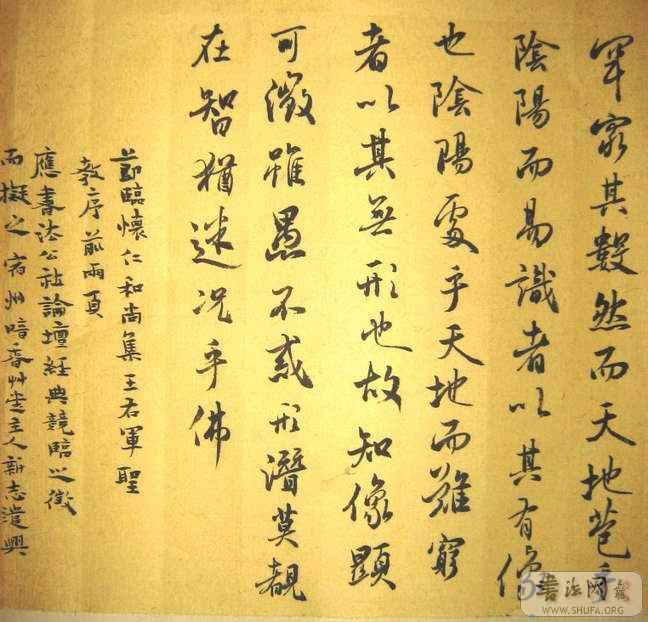 罕窮其數然而天地苞乎
陰陽而易識者以其有像
也陰陽處乎天地而難窮
者以其無形也故知像顯
可徵雖愚不惑形潛莫覩
在智猶迷況乎佛
節臨懷仁和尚集王右軍聖
教序前兩頁
應書法公社論壇經典競臨之徵
而擬之宿州暗香艸堂主人新志遣興
書法网
WWW.SHUFA.ORG